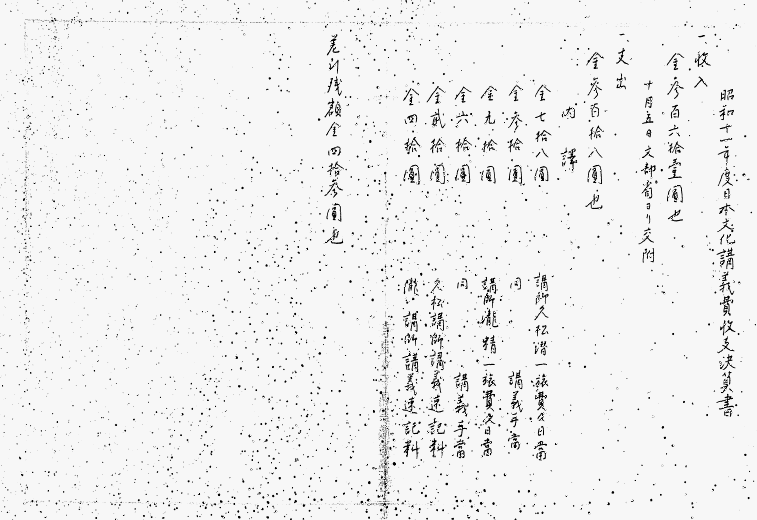 昭和十一年度日本文化講義費收支決算書
一收入
金參百六拾壹圓也
十月五日文部省ヨリ交附
一支出
金參百拾八圓也
内譯
金七拾八圓 講師久松潜一旅費及日當
金參拾圓 同 講義手當
金九拾圓 講師瀧精一旅費及日當
金六拾圓 同 講義手當
金貳拾圓 久松講師講義速記料
金四拾圓 瀧講師講義速記料
差引残額金四拾參圓也